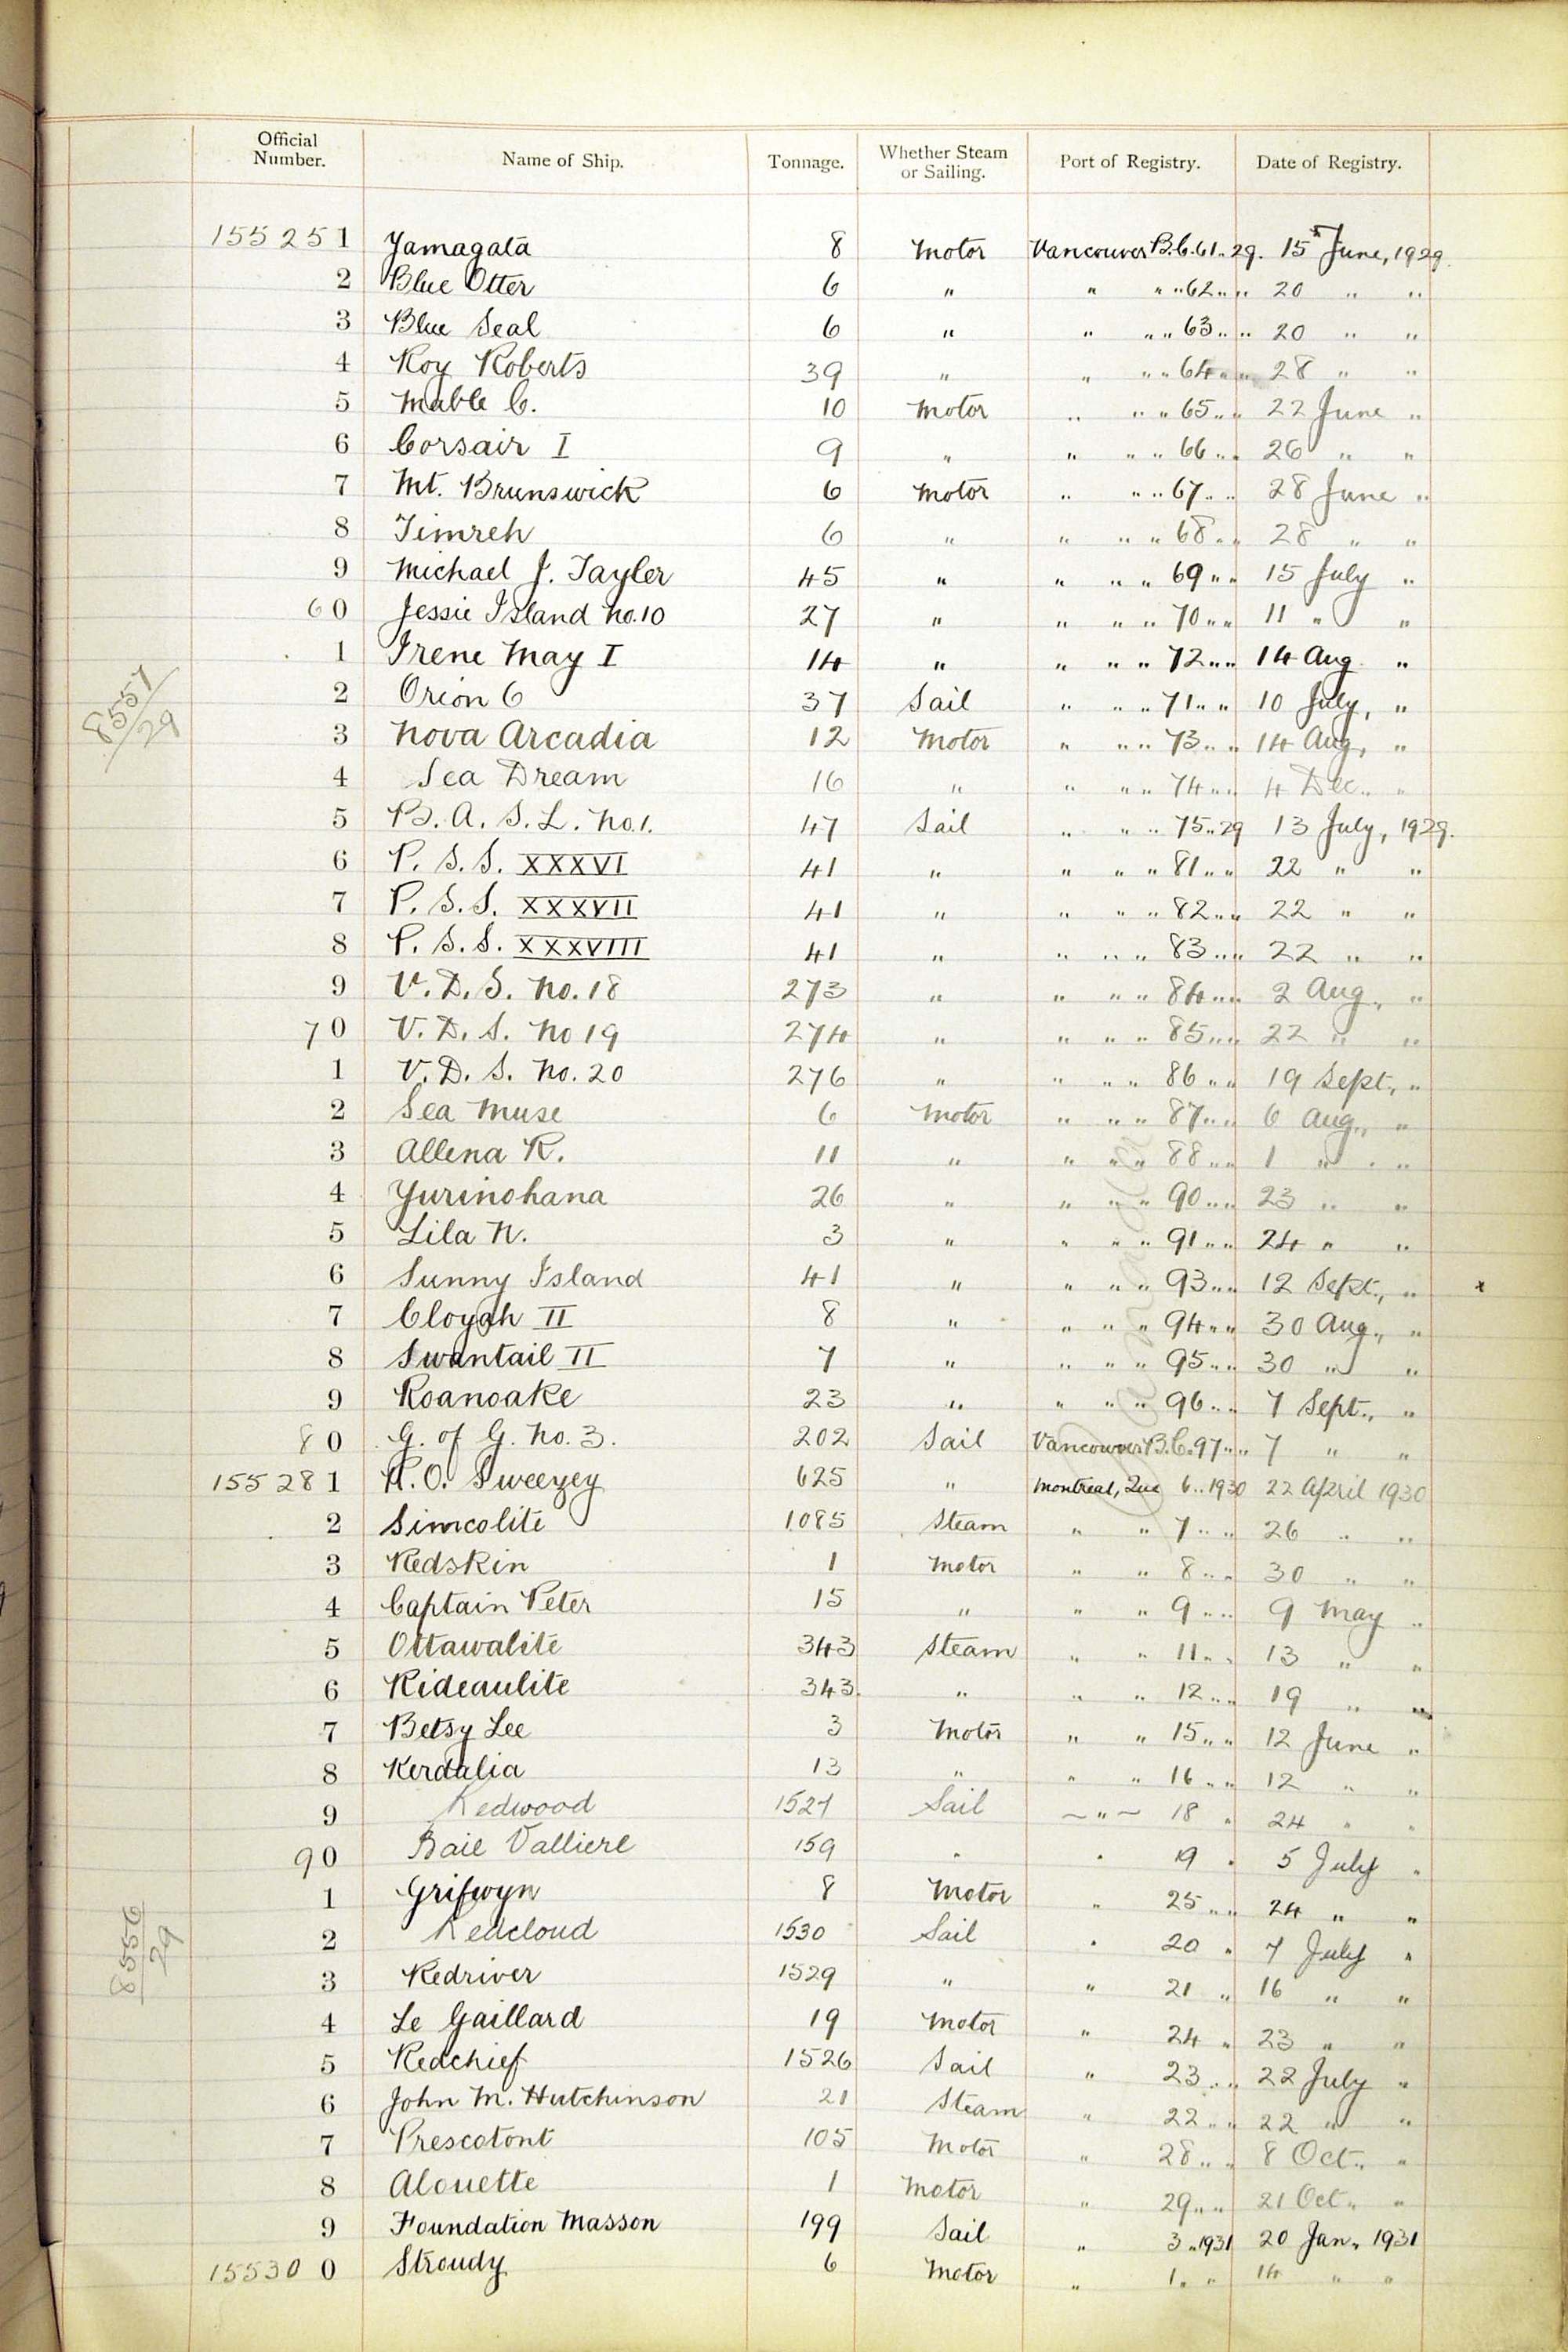 Official Number. Name of Ship. Tonnage. Whether Steam or Sailing. Port of Registry. Date of Registry.
155251 Yamagata 8 Motor Vancouver B.C. 61..29. 15 June, 1929.
2 Blue Otter 6 " " " " 62 " " 20 " "
3 Blue Seal 6 " " " " 63 " " 20 " "
4 Roy Roberts 39 " " " " 64 " " 28 " "
5 Mable C. 10 Motor " " " 65 " " 22 June "
6 Corsair I 9 " " " " 66 " " 26 " "
7 Mt. Brunswick 6 Motor " " " 67 " " 28 June "
8 Timreh 6 " " " " 68 " " 28 " "
9 Michael J. Tayler 45 " " " " 69 " " 15 July "
60 Jessie Island No.10 27 " " " " 70 " " 11 " "
1 Irene May I 14 " " " " 72 " " 14 Aug "
8557/29
2 Orion 6 37 Sail " " " 71 " " 10 July, "
3 Nova Arcadia 12 Motor " " " 73 " " 14 Aug, "
4 Sea Dream 16 " " " " 74 " " 4 Dec. "
5 B. A. S. L. No.1. 47 Sail " " " 75..29 13 July, 1929.
6 P. S. S. XXXVI 41 " " " " 81 " " 22 " "
7 P. S. S. XXXVII 41 " " " " 82 " " 22 " "
8 P. S. S. XXXVIII 41 " " " " 83 " " 22 " "
9 V. D. S. No. 18 273 " " " " 84 " " 2 Aug., "
70 V. D. S. No 19 274 " " " " 85 " " 22 " "
1 V. D. S. No. 20 276 " " " " 86 " " 19 Sept., "
2 Sea Muse 6 Motor " " " 87 " " 6 Aug., "
3 Allena R. 11 " " " " 88 " " 1 " "
4 Yurinohana 26 " " " " 90 " " 23 " "
5 Lila N. 3 " " " " 91 " " 24 " "
6 Sunny Island 41 " " " " 93 " " 12 Sept., " x
7 Cloyah II 8 " " " " 94 " " 30 Aug., "
8 Swantail II 7 " " " " 95 " " 30 " "
9 Roanoake 23 " " " " 96 " " 7 Sept., "
80 G. of G. No. 3. 202 Sail Vancouver B.C. 97 " " 7 " "
155281 R. O. Sweezey 625 " Montreal, Que 6..1930 22 April 1930
2 Simcolite 1085 Steam " " 7 " " 26 " "
3 Redskin 1 Motor " " 8 " " 30 " "
4 Captain Peter 15 " " " 9 " " 9 May "
5 Ottawalite 343 Steam " " 11 " " 13 " "
6 Rideaulite 343. " " " 12 " " 19 " "
7 Betsy Lee 3 Motor " " 15 " " 12 June "
8 Kerdalia 13 " " " 16 " " 12 " "
9 Redwood 1527 Sail " 18 " 24 " "
90 Baie Valliere 159 " " 19 " 5 July "
1 Grifwyn 8 Motor " 25 " " 24 " "
8556/29
2 Redcloud 1530 Sail " 20 " 7 July "
3 Redriver 1529 " " 21 " 16 " "
4 Le Gaillard 19 Motor " 24 " 23 " "
5 Redchief 1526 Sail " 23 " " 22 July "
6 John M. Hutchinson 21 Steam " 22 " " 22 " "
7 Prescotont 105 Motor " 28 " " 8 Oct. "
8 Alouette 1 Motor " 29 " " 21 Oct. "
9 Foundation Masson 199 Sail " 3..1931 20 Jan. 1931
155300 Stroudy 6 Motor " 1 " " 14 " "